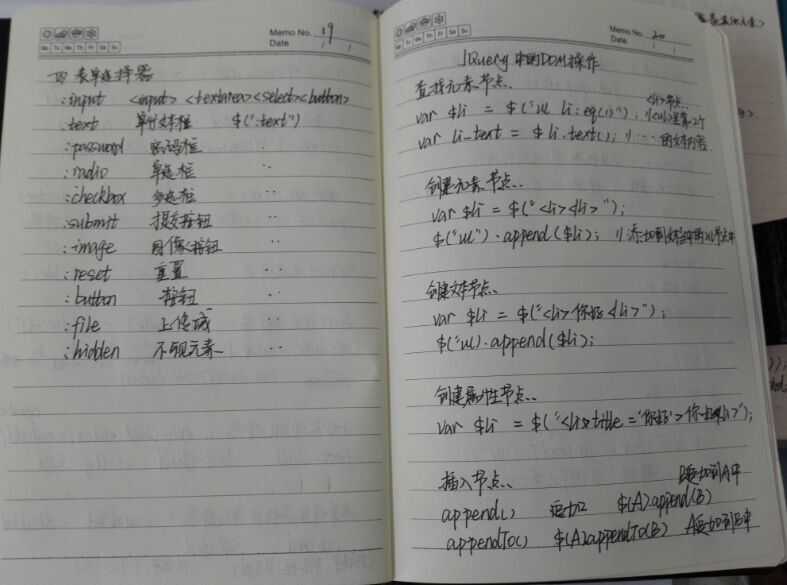 Memo No. 19
Mo Tu We Th Fr Sa Su
Date / /
四 表单选择器
:input <input> <textarea> <select> <button>
:text 单行文本框 $(":text")
:password 密码框 ··
:radio 单选框 ··
:checkbox 多选框 ··
:submit 提交按钮 ··
:image 图像按钮 ··
:reset 重置 ··
:button 按钮 ··
:file 上传域 ··
:hidden 不可见元素 ··
Memo No. 20
Mo Tu We Th Fr Sa Su
Date / /
JQuery 中的DOM操作
查找元素节点..
<li>节点..
var $li = $("ul li:eq(1)"); //<ul>里第2个
var li_text = $li.text(); // ···· 的文本内容
创建元素节点..
var $li = $("<li><li>");
$("ul").append($li); //添加到
创建文本节点..
var $li = $("<li>你好<li>");
$("ul).append($li);
创建属性节点..
var $li = $("<li title='你好'>你好<li>");
插入节点..
B追加到A中
append() 追加 $(A)append(B)
appendTo() $(A)appendTo(B) A追加到B中